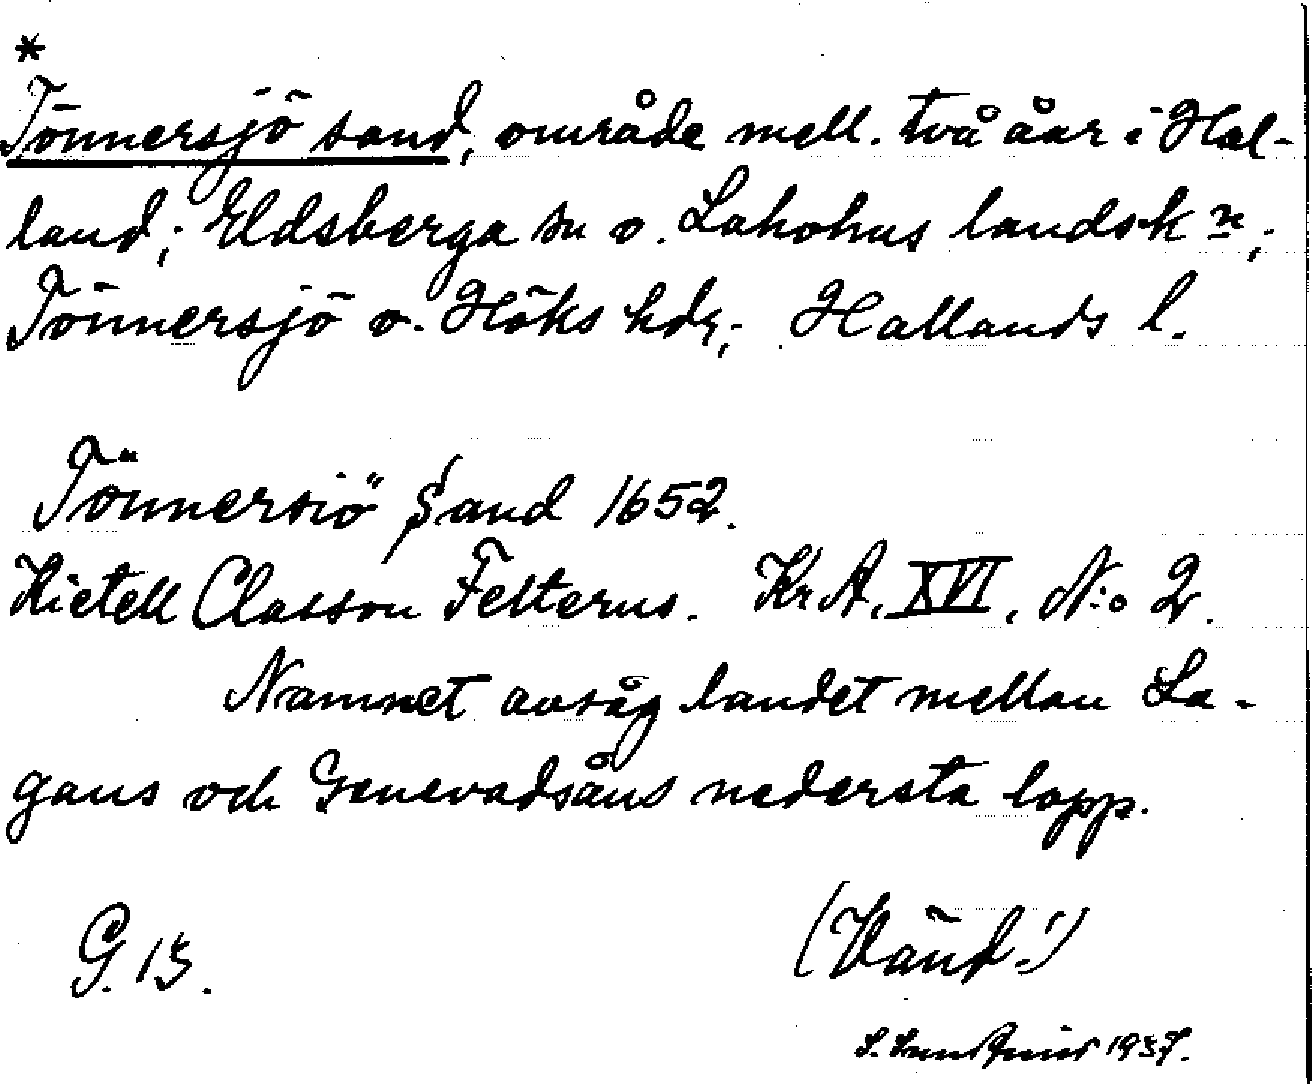 *
Tönnersjö sand, område mell. två åar i Hal-
land; Eldsberga sn o. Laholms landsk n;
Tönnersjö o. Höks hdr; Hallands l.
Tönnersiö Sand 1652.
Kietell Classon Felterus. Kr A. XVI. N:o 2.
Namnet avsåg landet mellan La-
gans och Genevadsåns nedersta lopp.
G. 13.
(Vänd!)
1937.